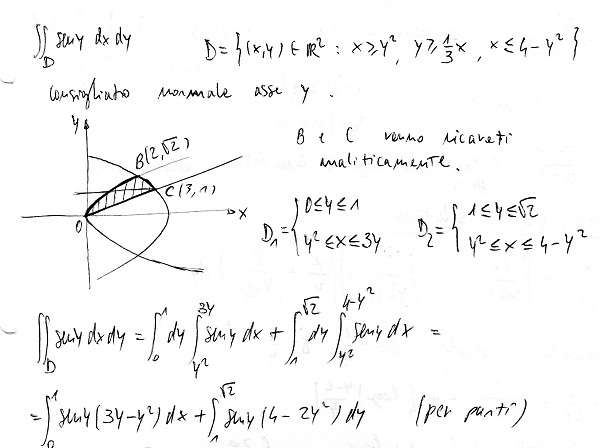 ∬_D sen y dx dy   D = {(x,y) ∈ ℝ² : x ≥ y², y ≥ 1/3 x, x ≤ 4 - y²}
consigliato normale asse y.
B e C vanno ricavati
analiticamente.
y
B(2,√2)
C(3,1)
O
x
D₁ = { 0 ≤ y ≤ 1   D₂ = { 1 ≤ y ≤ √2
y² ≤ x ≤ 3y   y² ≤ x ≤ 4 - y²
∬_D sen y dx dy = ∫₀¹ dy ∫_{y²}^{3y} sen y dx + ∫₁^{√2} dy ∫_{y²}^{4-y²} sen y dx =
= ∫₀¹ sen y (3y - y²) dx + ∫₁^{√2} sen y (4 - 2y²) dy   (per parti)